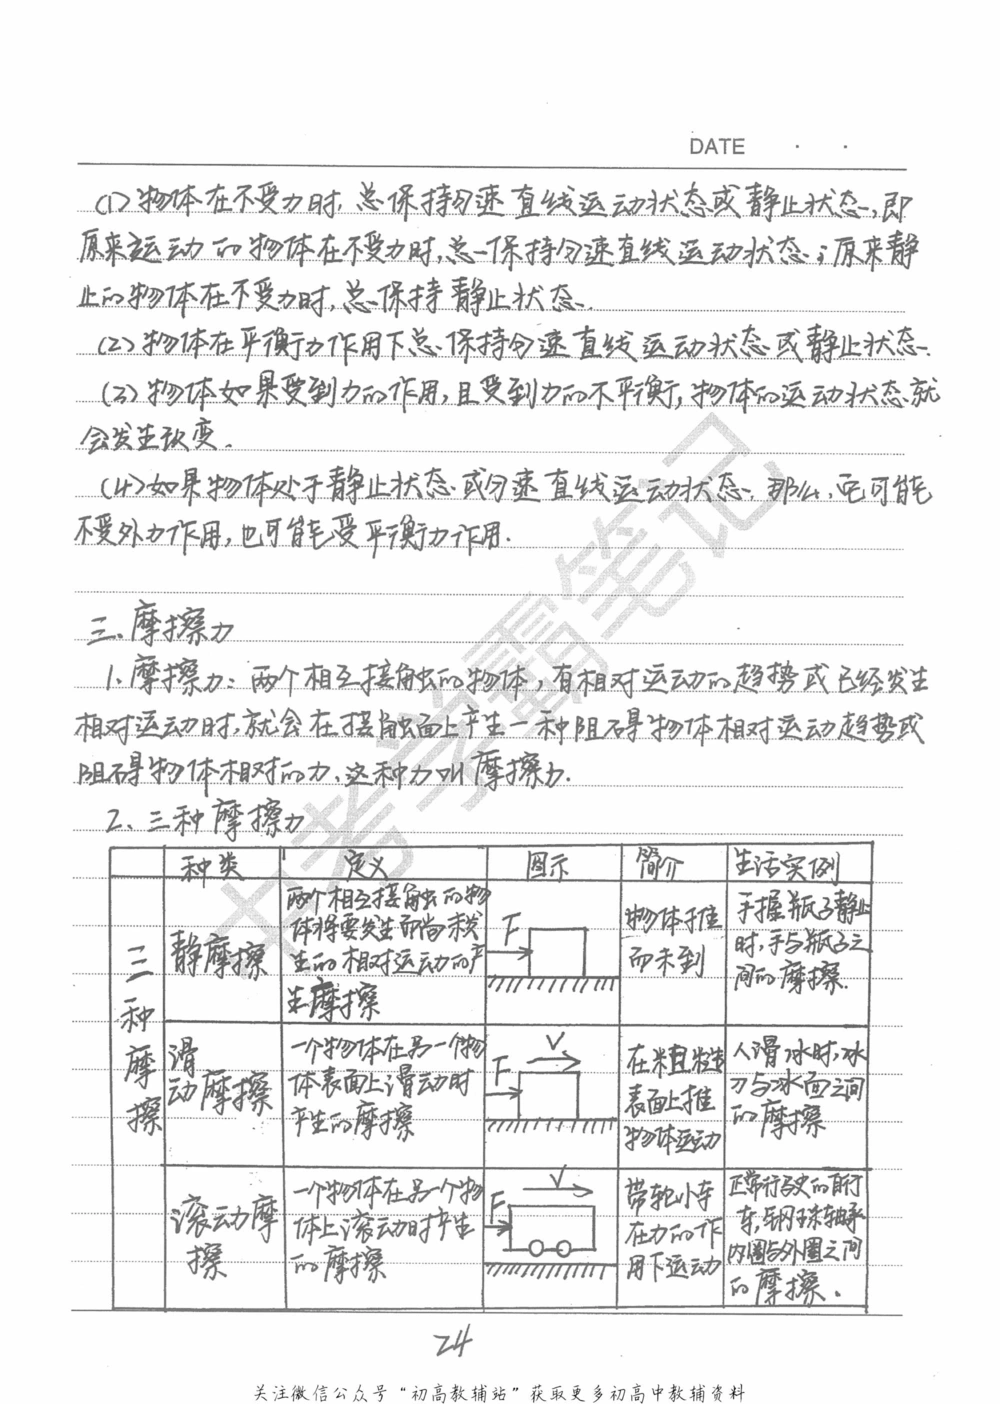 DATE · ·
(1)物体在不受力时,总保持匀速直线运动状态或静止状态,即
原来运动的物体在不受力时,总保持匀速直线运动状态;原来静
止的物体在不受力时,总保持静止状态.
(2)物体在平衡力作用下总保持匀速直线运动状态或静止状态.
(3)物体如果受到力的作用,且受到力的不平衡,物体的运动状态就
会发生改变.
(4)如果物体处于静止状态或匀速直线运动状态,那么,它可能
不受外力作用,也可能受平衡力作用.
三、摩擦力
1、摩擦力:两个相互接触的物体,有相对运动的趋势或已经发生
相对运动时,就会在接触面上产生一种阻碍物体相对运动趋势或
阻碍物体相对的力,这种力叫摩擦力.
2、三种摩擦力
种类 定义 图示 简介 生活实例
三种摩擦
静摩擦
两个相互接触的物
体将要发生而尚未发
生的相对运动的产
生摩擦
F
物体推
而未到
手握瓶子静止
时,手与瓶子之
间的摩擦.
滑
动摩擦
一个物体在另一个物
体表面上滑动时
产生的摩擦
V
F
在粗糙
表面上推
物体运动
人滑冰时,冰
刀与冰面之间
的摩擦
滚动摩
擦
一个物体在另一个物
体上滚动时产生
的摩擦
V
F
带轮小车
在力的作
用下运动
正常行驶的自行
车,钢球轴承
内圈与外圈之间
的摩擦.
24
关注微信公众号“初高教辅站”获取更多初高中教辅资料
中考学霸笔记